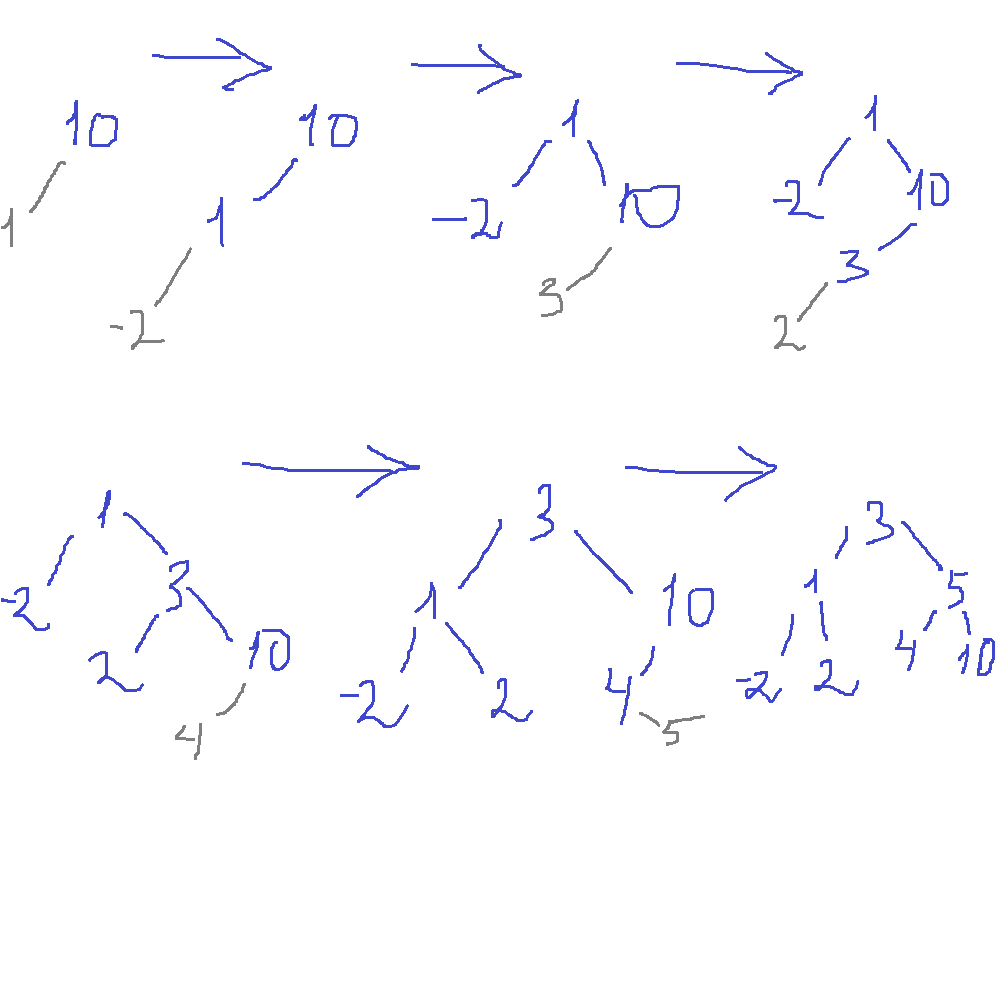 10
1
10
1
-2
1
-2 10
3
1
-2 10
3
2
1
-2 3
2 10
4
3
1 10
-2 2 4
5
3
1 5
-2 2 4 10